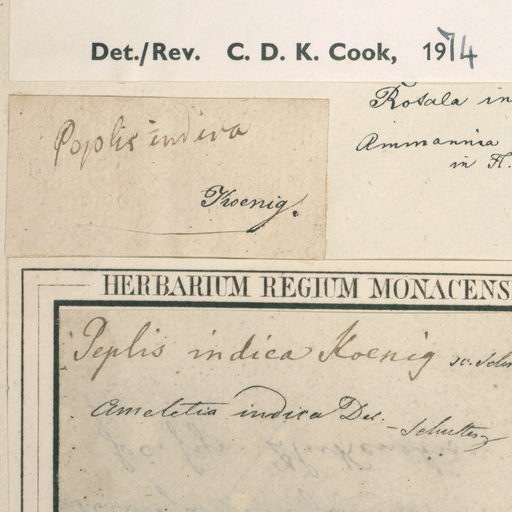 Det./Rev. C. D. K. Cook, 1974
Rotala in
Ammannia
in Fl.
Peplis indica
Koenig.
HERBARIUM REGIUM MONACENS
Peplis indica Koenig
Ameletia indica Dec. - Schultes